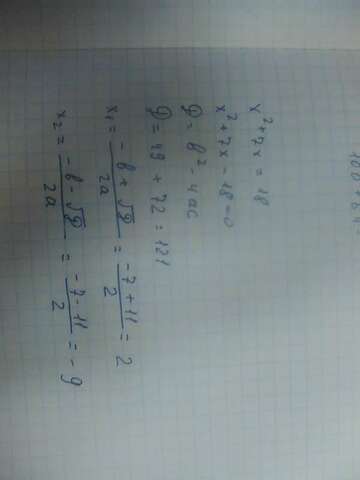 x² + 7x = 18
x² + 7x - 18 = 0
D = b² - 4ac
D = 49 + 72 = 121
x₁ = (-b + √D)/2a = (-7 + 11)/2 = 2
x₂ = (-b - √D)/2a = (-7 - 11)/2 = -9